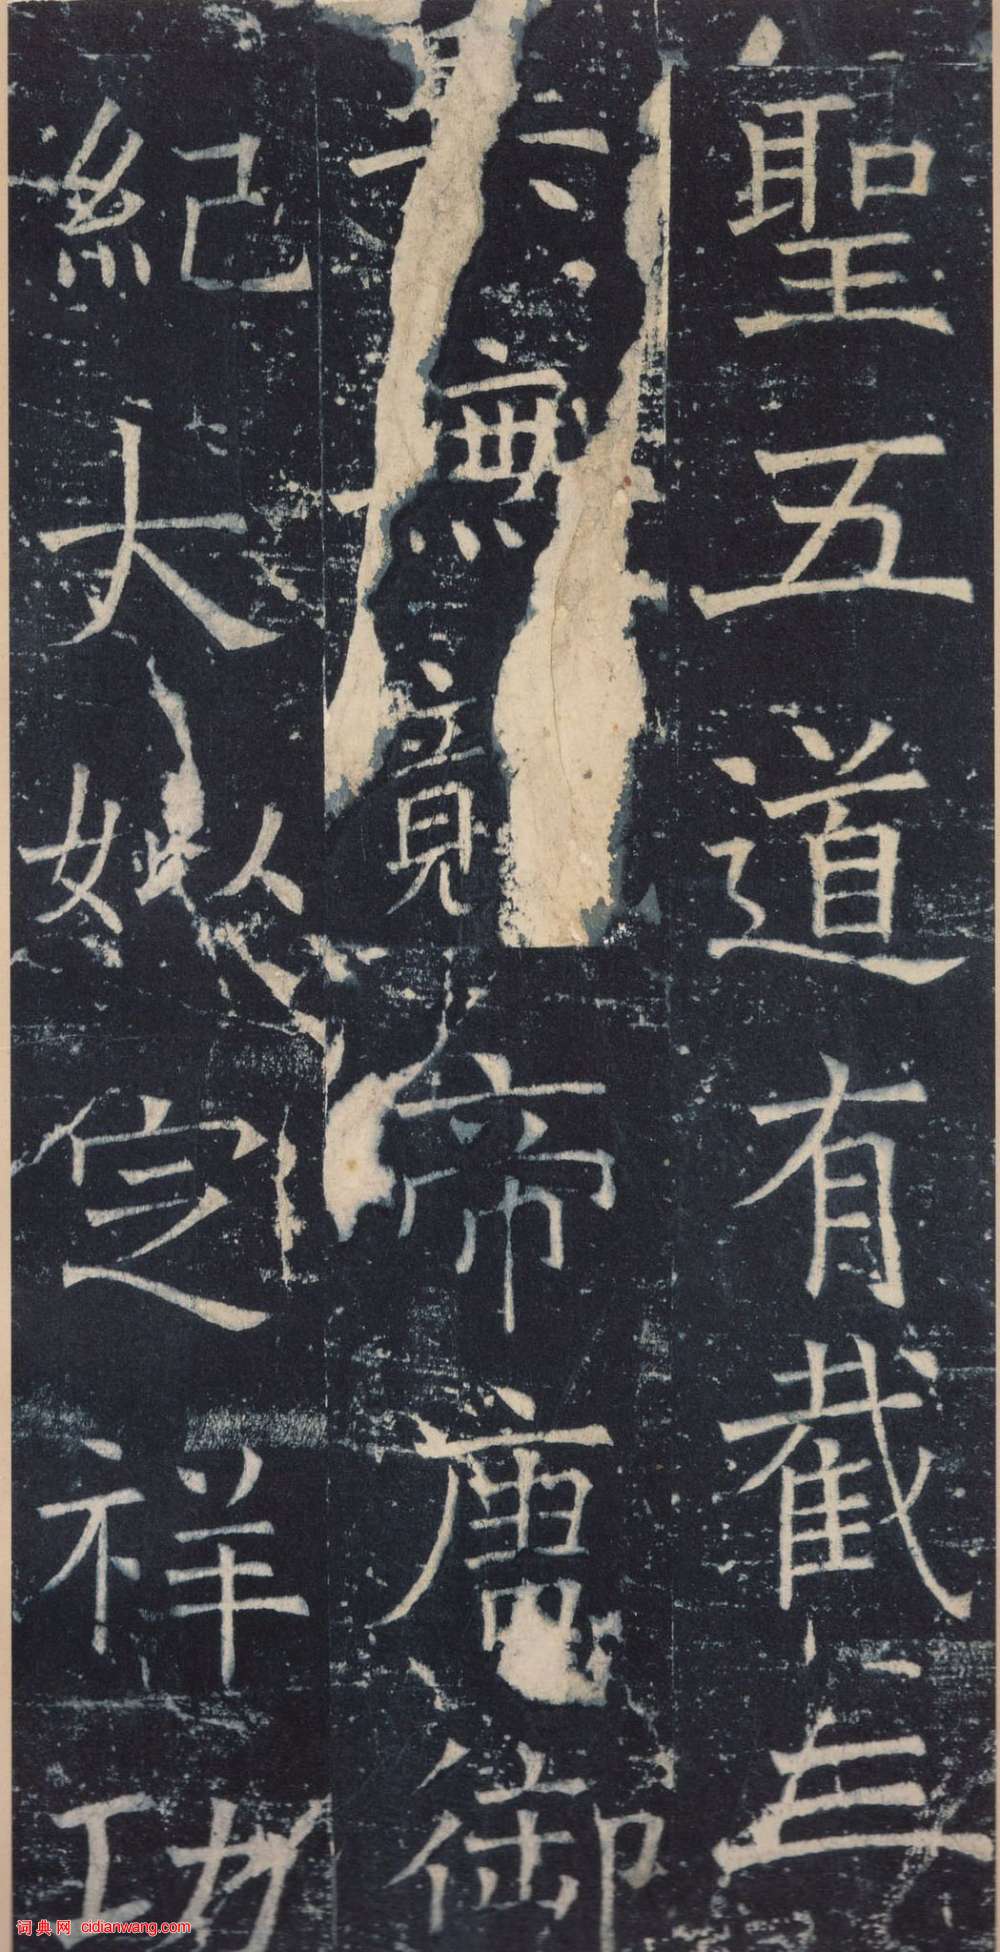 聖五道有截三
無竟帝唐御
紀大姒定祥功
词典网 cidianwang.com